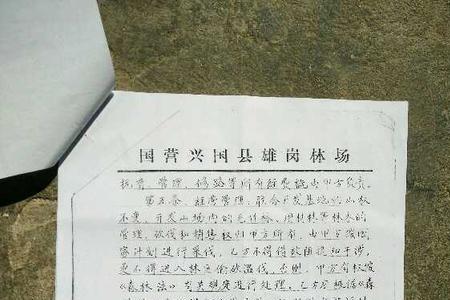 国营兴国县雄岗林场
抚育、管理、修路等所有经费统由甲方负责。
第五条、经营管理：联合开发基地的山权
不变，开发山场内的毛竹林、用材林等林木的
管理、砍伐和销售权归甲方所有，由甲方按国
家计划进行采伐，乙方不得借故阻挠和干涉，
更不得进入林区偷砍滥伐，否则，甲方有权按
《森林法》有关规定进行处理，乙方应根据《森